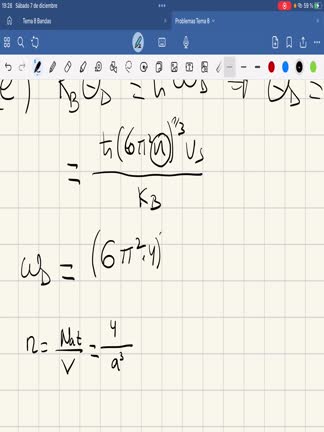 19:28 Sábado 7 de diciembre
59 %
Tema 8 Bandas
Problemas Tema 8
e) K_B Θ_D = ħ ω_D → Θ_D =
= ħ(6π² n)^{1/3} v_s / K_B
ω_D = (6π²·4)
n = Nat / V = 4 / a³